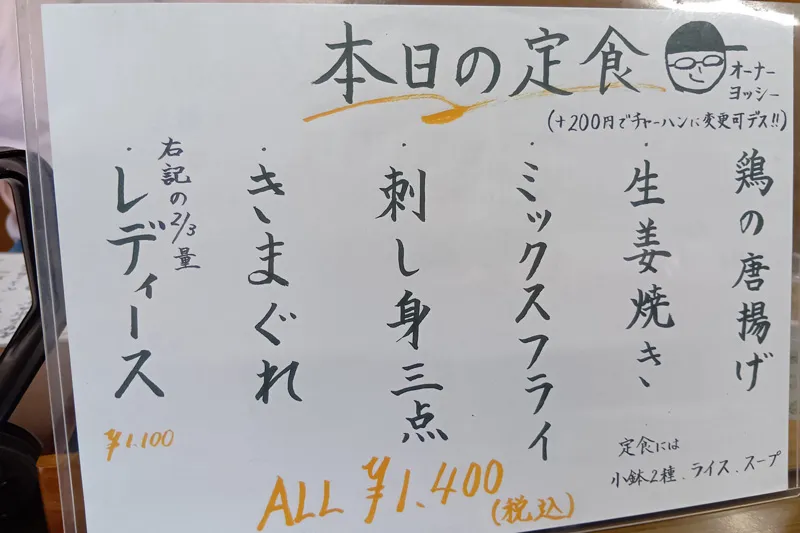 本日の定食
オーナー
ヨッシー
(+200円でチャーハンに変更可デス!!)
鶏の唐揚げ
・生姜焼き
・ミックスフライ
・刺し身三点
・きまぐれ
・レディース
右記の2/3量
¥1.100
定食には
小鉢2種、ライス、スープ
ALL ¥1.400
(税込)